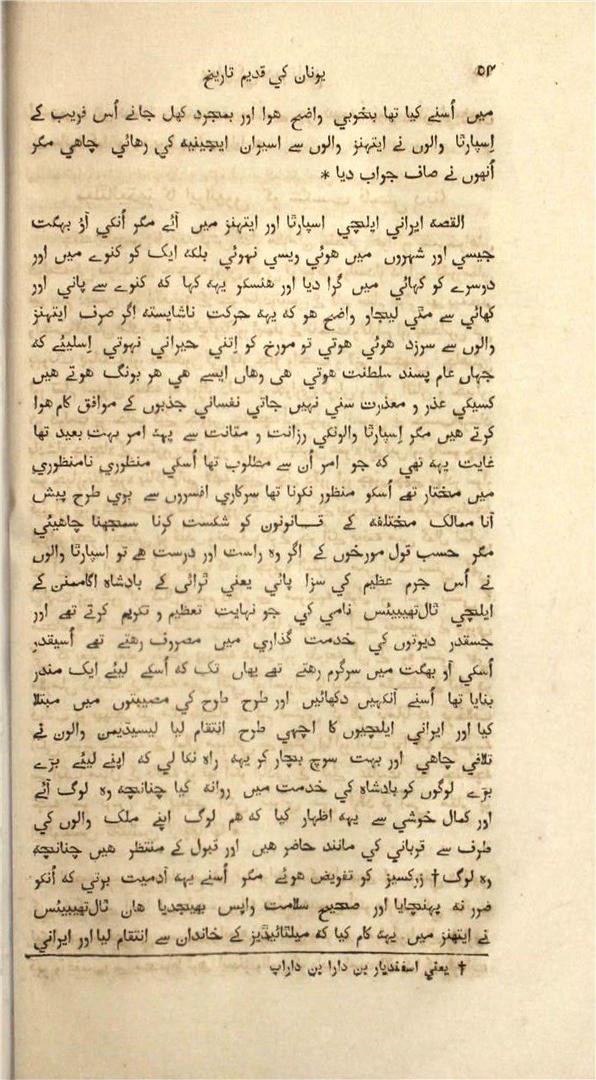 ۵۴
یونان کي قدیم تاریخ
میں اُسنے کیا تها بخوبي واضح هوا اور بمجرد کهل جانے اُس فریب کے
اِسپارٹا والوں نے ایتهنز والوں سے اسیران ایجینیه کي رهائي چاهي مگر
اُنهوں نے صاف جواب دیا *
القصه ایراني ایلچي اسپارٹا اور ایتهنز میں آئے مگر اُنکي آؤ بهگت
جیسي اور شهروں میں هوئي ویسي نهوئي بلکه ایک کو کنوے میں اور
دوسرے کو کهائي میں گرا دیا اور هنسکر یهه کها که کنوے سے پاني اور
کهائي سے مٹي لیجاو واضح هو که یهه حرکت ناشایسته اگر صرف ایتهنز
والوں سے سرزد هوئي هوتي تو مورخ کو اِتني حیراني نهوتي اِسلیئے که
جهاں عام پسند سلطنت هوتي هی وهاں ایسے هي هر بونگ هوتے هیں
کسیکي عذر و معذرت سني نهیں جاتي نفساني جذبوں کے موافق کام هوا
کرتے هیں مگر اِسپارٹا والونکي رزانت و متانت سے یهه امر بهت بعید تها
غایت یهه تهي که جو امر اُن سے مطلوب تها اُسکي منظوري نامنظوري
میں مختار تهے اُسکو منظور نکرنا تها سرکاري افسروں سے بري طرح پیش
آنا ممالک مختلفه کے قانونون کو شکست کرنا سمجهنا چاهیئي
مگر حسب قول مورخوں کے اگر وه راست اور درست هے تو اسپارٹا والوں
نے اُس جرم عظیم کي سزا پائي یعني ٹرائي کے بادشاه اگاممنن کے
ایلچي ٹال‌تهیبیئس نامي کي جو نهایت تعظیم و تکریم کرتے تهے اور
جسقدر دیوتوں کي خدمت گذاري میں مصروف رهتے تهے اُسیقدر
اُسکي آو بهگت میں سرگرم رهتے تهے یهاں تک که اُسکے لیئے ایک مندر
بنایا تها اُسنے آنکهیں دکهائیں اور طرح طرح کي مصیبتوں میں مبتلا
کیا اور ایراني ایلچیوں کا اچهي طرح انتقام لیا لیسیڈیمن والون نے
تلافي چاهي اور بهت سوچ بچار کر یهه راه نکالي که اپنے لیئے بڑے
بڑے لوگوں کو بادشاه کي خدمت میں روانه کیا چنانچه وه لوگ آئے
اور کمال خوشي سے یهه اظهار کیا که هم لوگ اپنے ملک والوں کي
طرف سے قرباني کي مانند حاضر هیں اور قبول کے منتظر هیں چنانچه
وه لوگ † زرکسیز کو تفویض هوئے مگر اُسنے یهه آدمیت برتي که اُنکو
ضرر نه پهنچایا اور صحیح سلامت واپس بهیجدیا هان ٹال‌تهیبیئس
نے ایتهنز میں یهه کام کیا که میلٹائیڈیز کے خاندان سے انتقام لیا اور ایراني
† یعني اسفندیار بن دارا بن داراپ